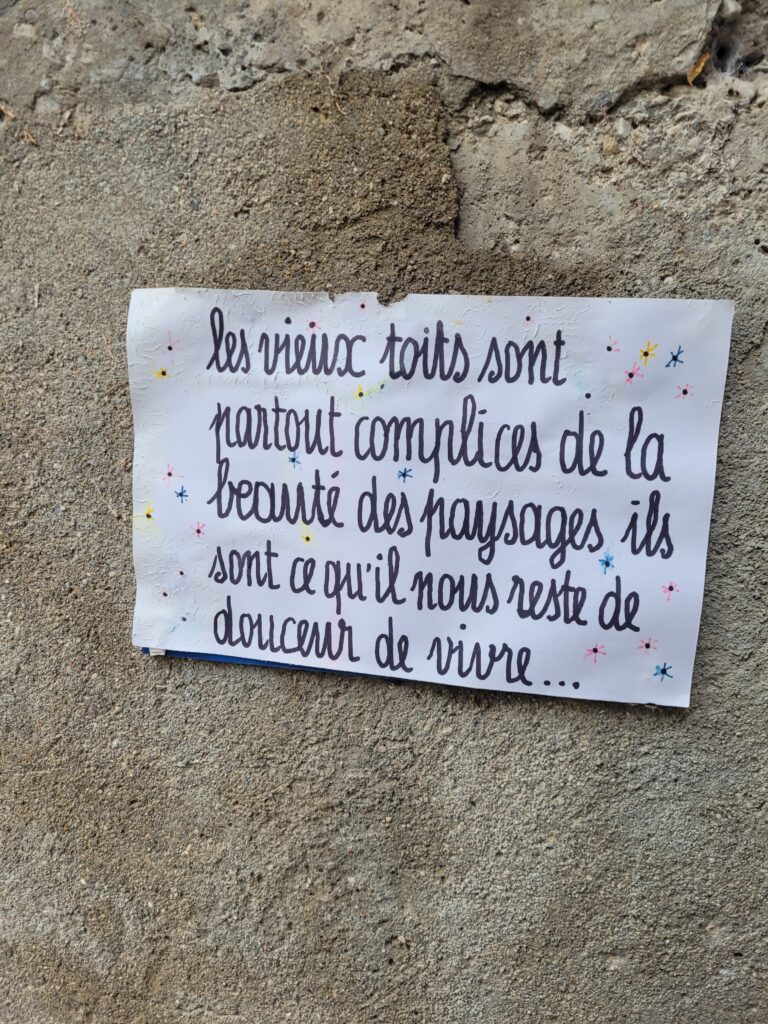 les vieux toits sont
partout complices de la
beauté des paysages ils
sont ce qu'il nous reste de
douceur de vivre...